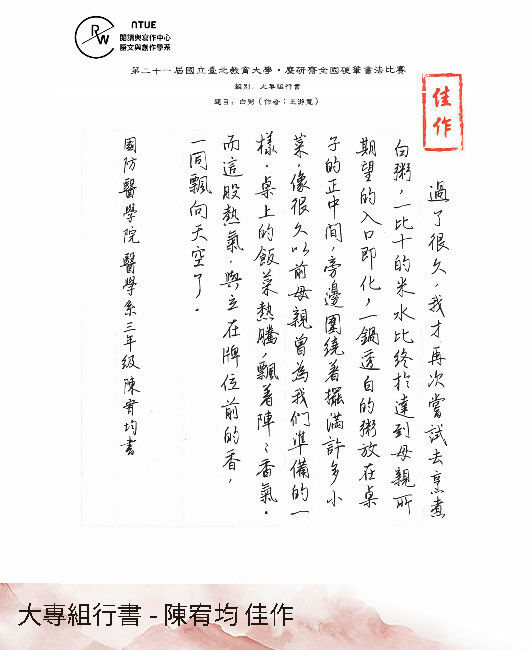 RW
NTUE
閱讀與寫作中心
語文與創作學系
第二十一屆國立臺北教育大學・麋研齋全國硬筆書法比賽
組別：大專組行書
題目：白粥（作者：王溢寬）
佳作
過了很久，我才再次嘗試去烹煮
白粥，一比十的米水比終於達到母親所
期望的入口即化，一鍋透白的粥放在桌
子的正中間，旁邊圍繞著擺滿許多小
菜，像很久以前母親曾為我們準備的一
樣。桌上的飯菜熱騰，飄著陣〻香氣。
而這股熱氣，與立在牌位前的香，
一同飄向天空了。
國防醫學院醫學系三年級陳宥均書
大專組行書 - 陳宥均 佳作